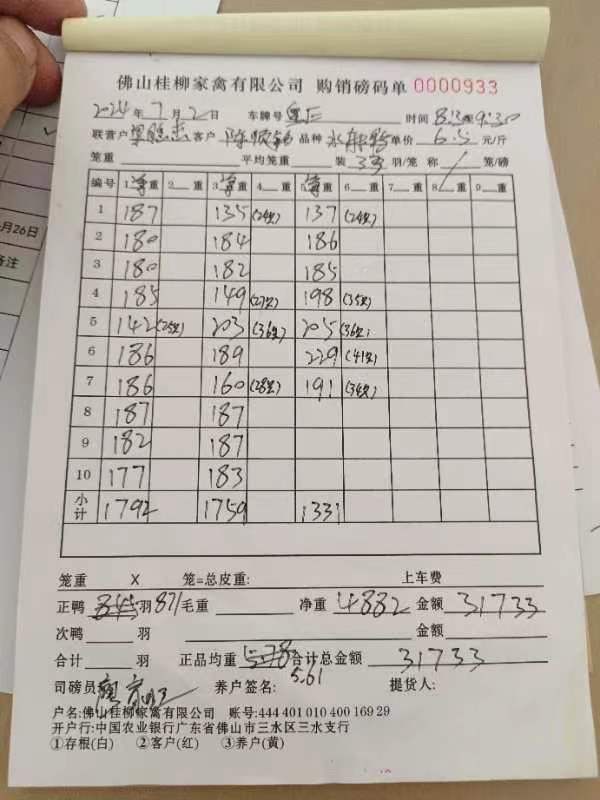 佛山桂柳家禽有限公司 购销磅码单 0000933
2024年7月2日 车牌号 时间
联营户 客户 品种 单价 6.5 元/斤
笼重 平均笼重 装 羽/笼 称 笼/磅
编号 1 单重 2 重 3 单重 4 重 5 单重 6 重 7 重 8 重 9 重
1 187 135 (24只) 137 (24只)
2 180 184 186
3 180 182 185
4 185 149 (27只) 198 (35只)
5 142 (25只) 203 (36只) 205 (36只)
6 186 189 229 (41只)
7 186 160 (28只) 191 (34只)
8 187 187
9 182 187
10 177 183
小计 1792 1759 1331
笼重 X 笼=总皮重: 上车费
正鸭 羽 871 毛重 净重 4882 金额 31733
次鸭 羽 金额
合计 羽 正品均重 5.78 合计总金额 31733
5.61
司磅员 养户签名: 提货人:
户名:佛山桂柳家禽有限公司 账号:444 401 010 400 169 29
开户行:中国农业银行广东省佛山市三水区三水支行
①存根(白) ②客户(红) ③养户(黄)
月26日
备注